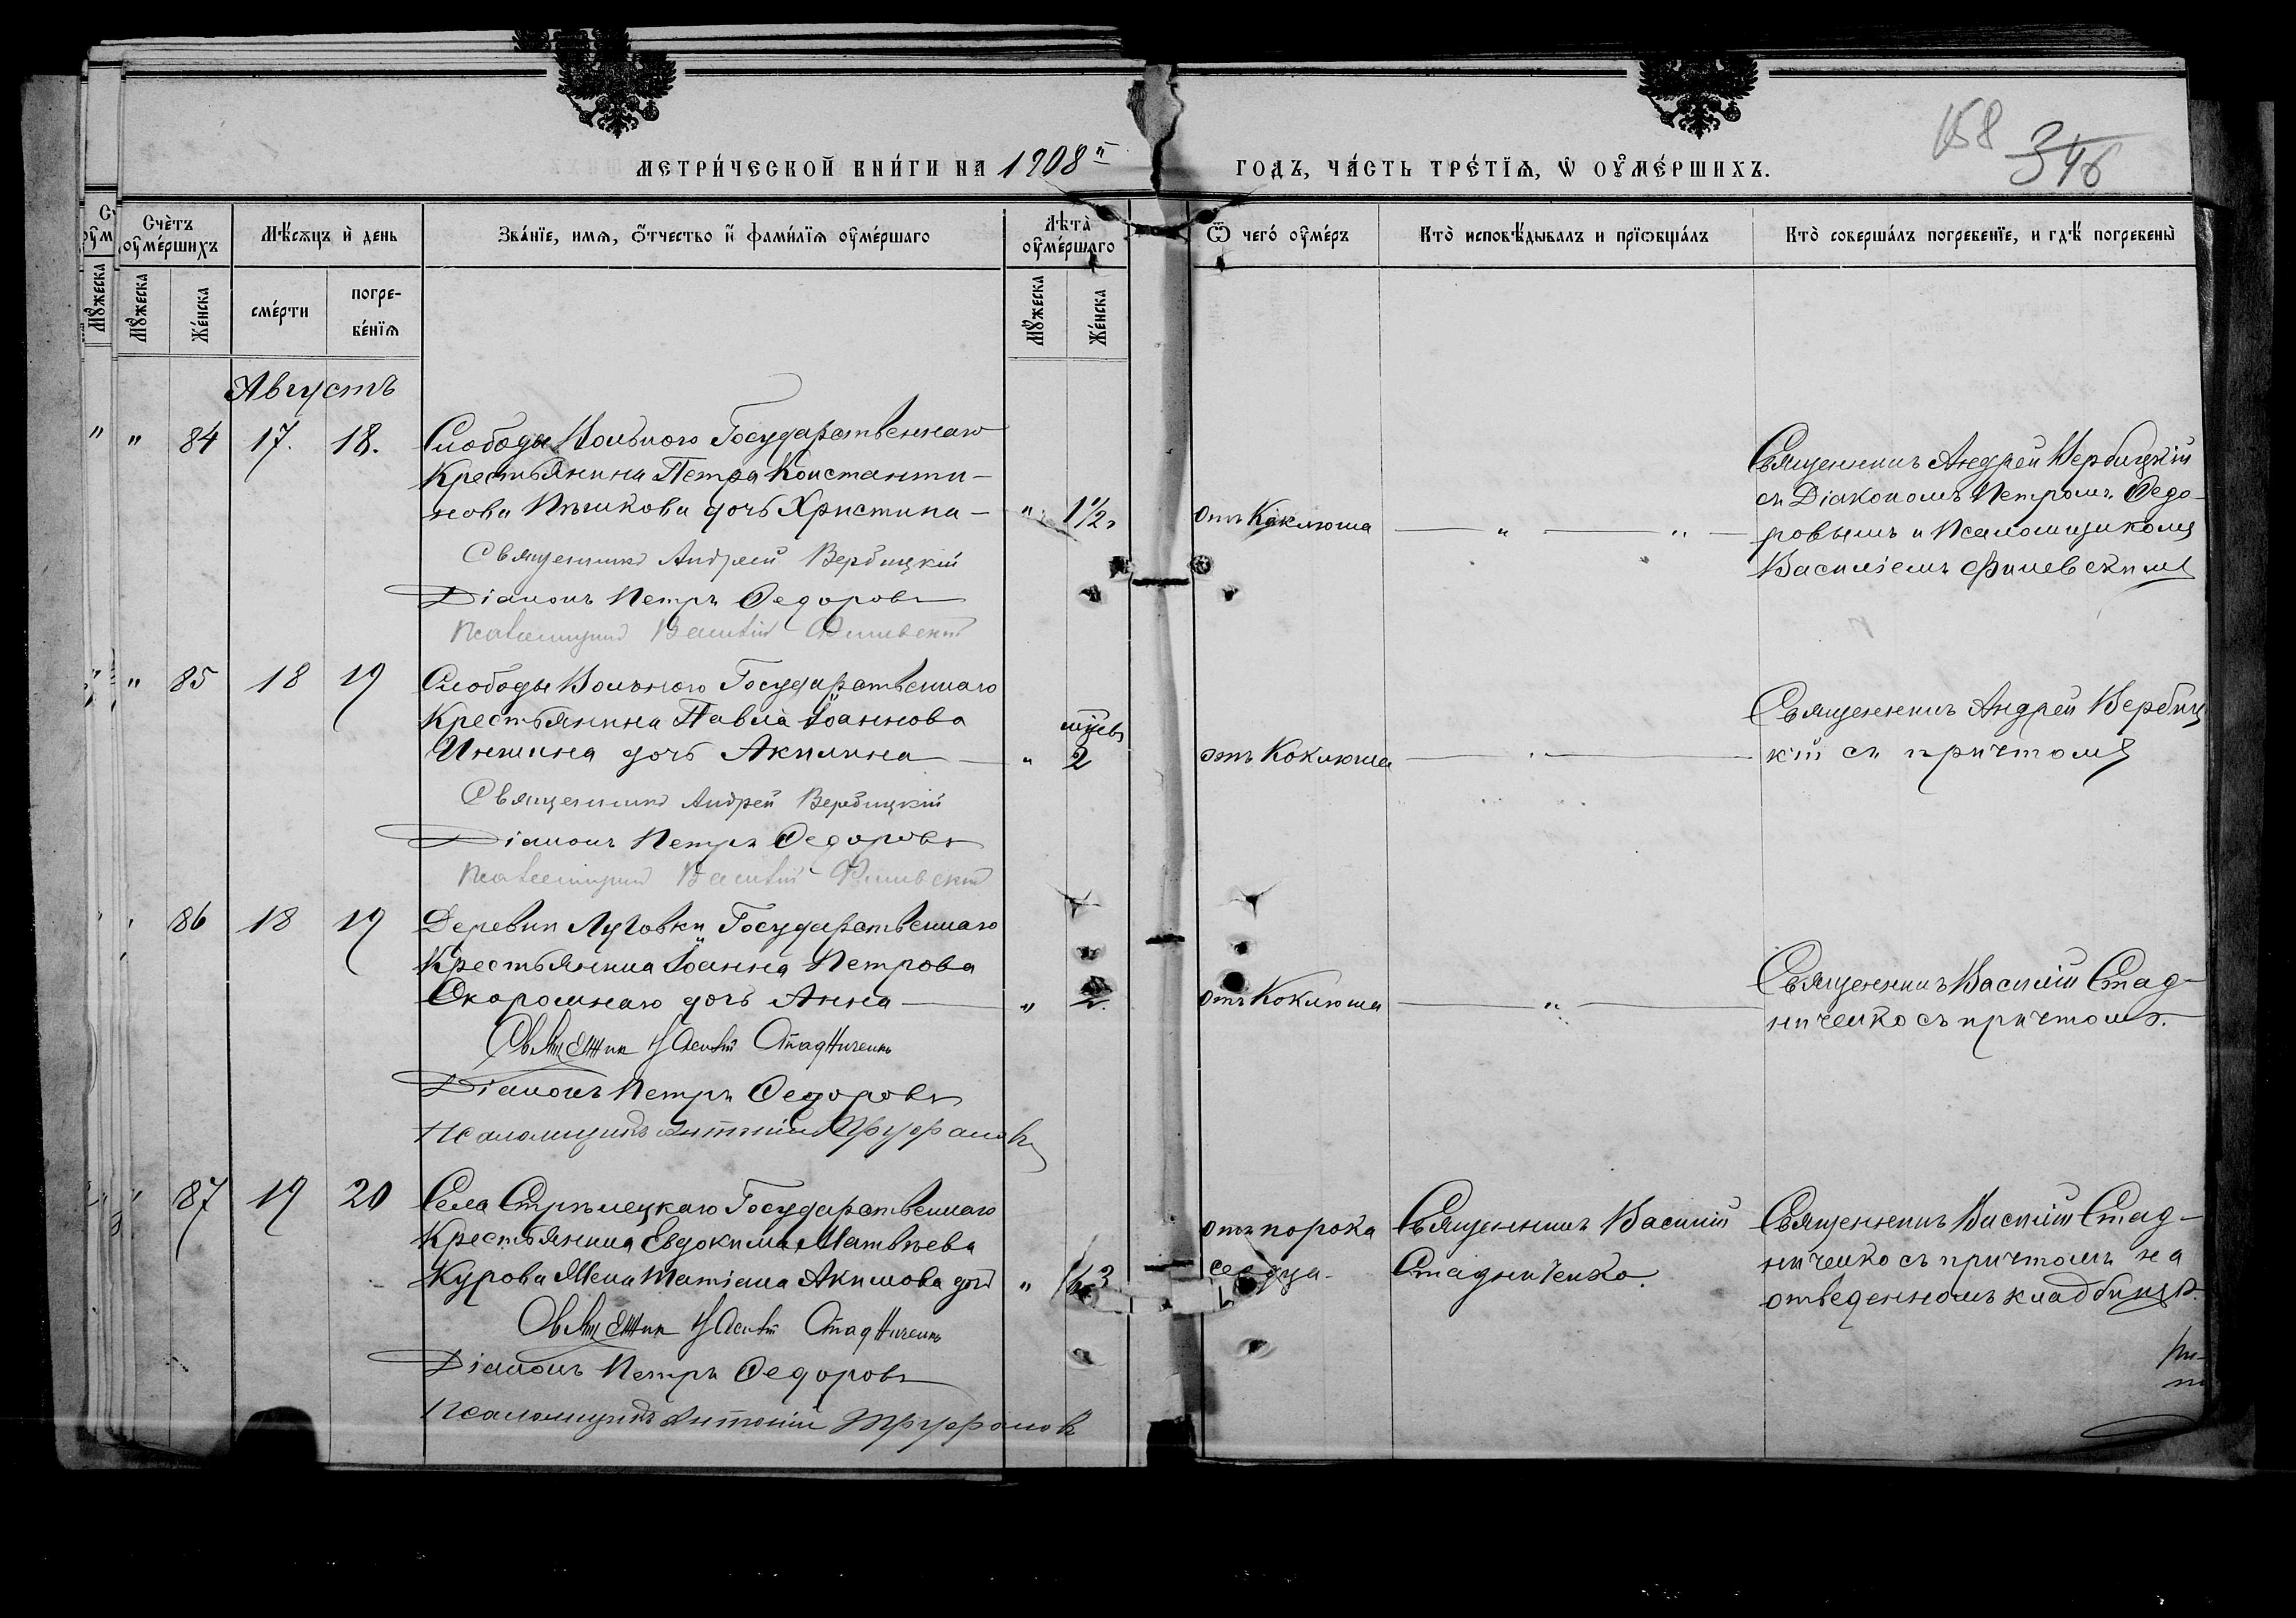 158 346
МЕТРИ́ЧЕСКОЙ КНИ́ГИ НА 1908й ГОДЪ, ЧА́СТЬ ТРЕ́ТЇѦ, Ѡ҆ ОУ҆МЕ́РШИХЪ.
Счѐтъ оу҆ме́ршихъ
Мѣ́сѧцъ и҆ день
Зва́нїе, имѧ, ѻ҆́тчество и҆ фами́лїѧ оу҆ме́ршаго
Лѣта̀ оу҆ме́ршаго
Ѿ чегѡ́ оу҆ме́ръ
Кто̀ исповѣ́дывалъ и прїѡбща́лъ
Кто̀ соверша́лъ погребенїе, и гдѣ́ погребены̀
Мꙋ́жеска
Же́нска
сме́рти
погре-
бе́нїѧ
Мꙋ́жеска
Же́нска
Августъ
" 84 17. 18.
Слободы Вольного Государственнаго
Крестьянина Петра Константи-
нова Пѣшкова дочь Христина — " 1½
Священникъ Андрей Вербицкій
Діаконъ Петръ Ѳедоровъ
Псаломщикъ Василій Филевскій
отъ Коклюша — " — " —
Священникъ Андрей Вербицкій
съ Діакономъ Петромъ Ѳедо-
ровымъ и Псаломщикомъ
Василіемъ Филевскимъ
" 85 18 19
Слободы Вольного Государственнаго
Крестьянина Павла Іоаннова
Иншина дочь Акилина — " мѣсяцъ 2
Священникъ Андрей Вербицкій
Діаконъ Петръ Ѳедоровъ
Псаломщикъ Василій Филевскій
отъ Коклюша
Священникъ Андрей Вербиц
кій съ причтомъ
" 86 18 19
Деревни Луговки Государственнаго
Крестьянина Іоанна Петрова
Скоромнаго дочь Анна — " 2.
Священникъ Василій Стадниченко
Діаконъ Петръ Ѳедоровъ
Псаломщикъ Антоній Труфановъ
отъ Коклюша — " —
Священникъ Василій Стад-
ниченко съ причтомъ.
" 87 19 20
Села Стрѣлецкаго Государственнаго
Крестьянина Евдокима Матвѣева
Курова Жена Татіана Акимова " 63
Священникъ Василій Стадниченко
Діаконъ Петръ Ѳедоровъ
Псаломщикъ Антоній Труфановъ
отъ порока
сердца.
Священникъ Василій
Стадниченко.
Священникъ Василій Стад-
ниченко съ причтомъ на
отведенномъ кладбищѣ.